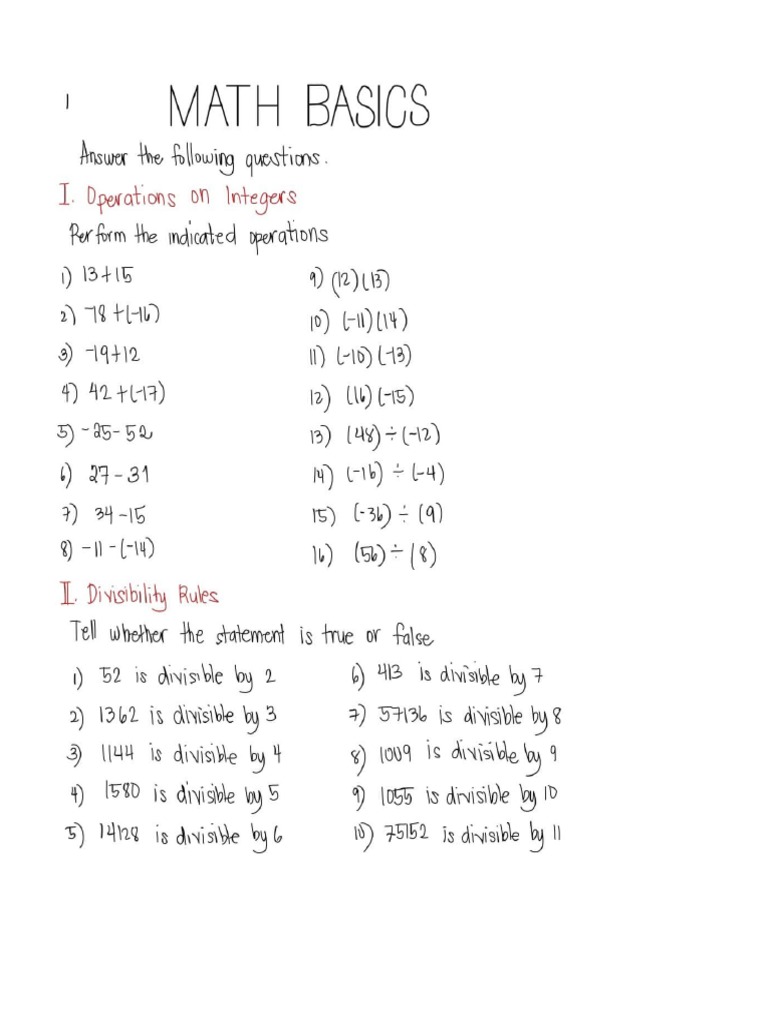 1
MATH BASICS
Answer the following questions.
I. Operations on Integers
Perform the indicated operations
1) 13+15
2) -18+(-16)
3) -19+12
4) 42+(-17)
5) -25-52
6) 27-31
7) 34-15
8) -11-(-14)
9) (12)(13)
10) (-11)(14)
11) (-10)(-13)
12) (16)(-15)
13) (48)÷(-12)
14) (-16) ÷ (-4)
15) (-36) ÷ (9)
16) (56) ÷ (8)
II. Divisibility Rules
Tell whether the statement is true or false
1) 52 is divisible by 2
2) 1362 is divisible by 3
3) 1144 is divisible by 4
4) 1580 is divisible by 5
5) 14128 is divisible by 6
6) 413 is divisible by 7
7) 57136 is divisible by 8
8) 1009 is divisible by 9
9) 1055 is divisible by 10
10) 75152 is divisible by 11